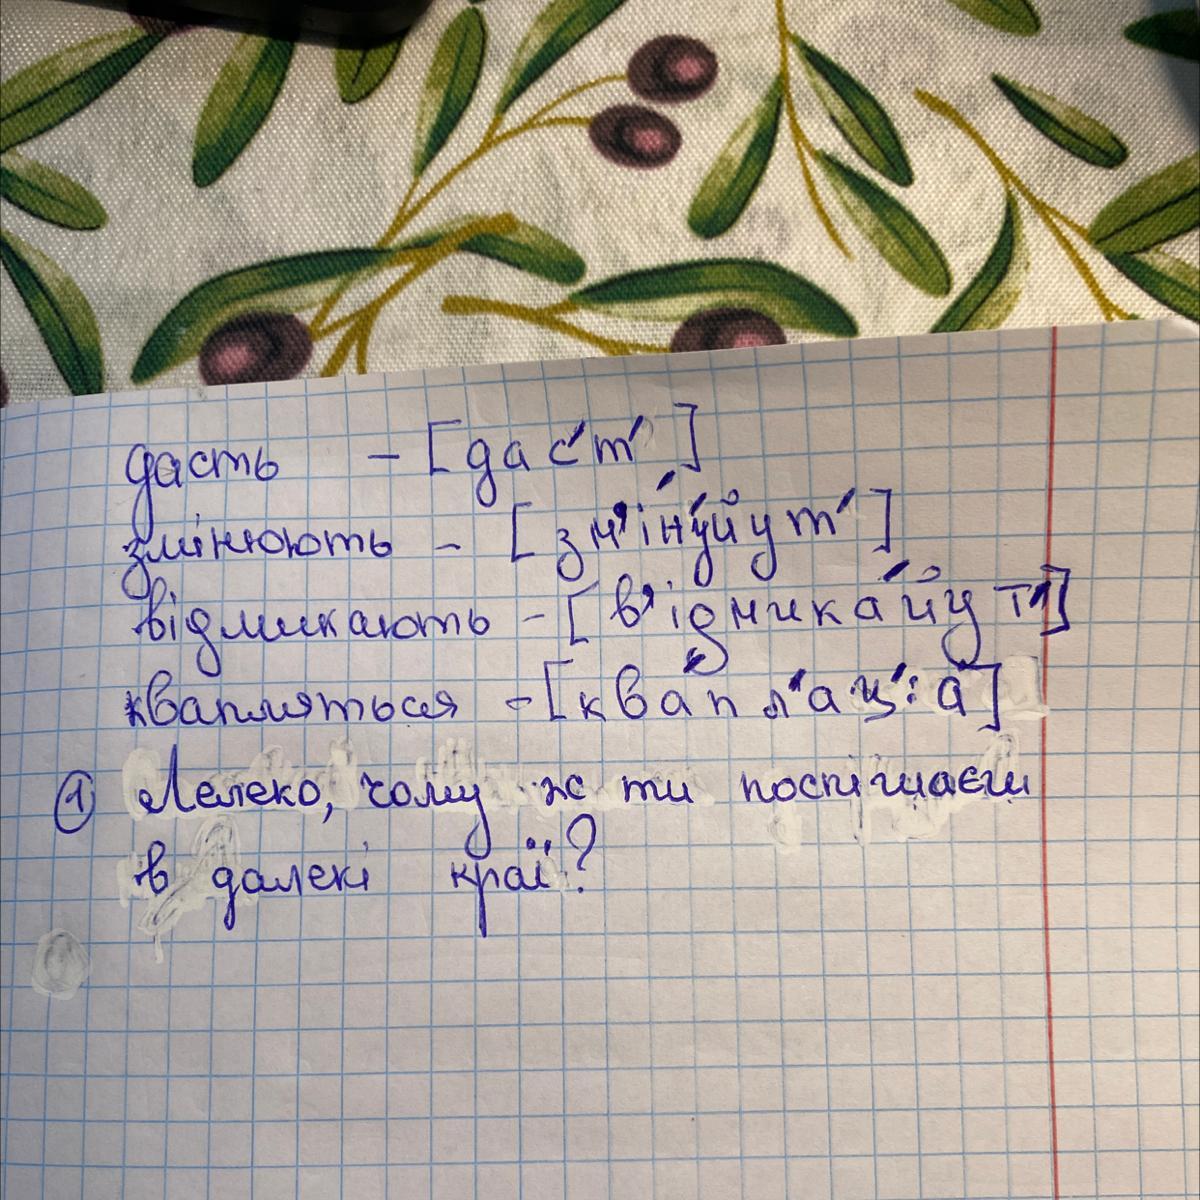 дасть - [дас′т′]
змінюють - [зм’ін′уйут′]
відмикають - [в’ідмикайут′]
квапляться - [квапл′ац′:а]
① Лелеко, чому ж ти поспішаєш
в далекі краї?